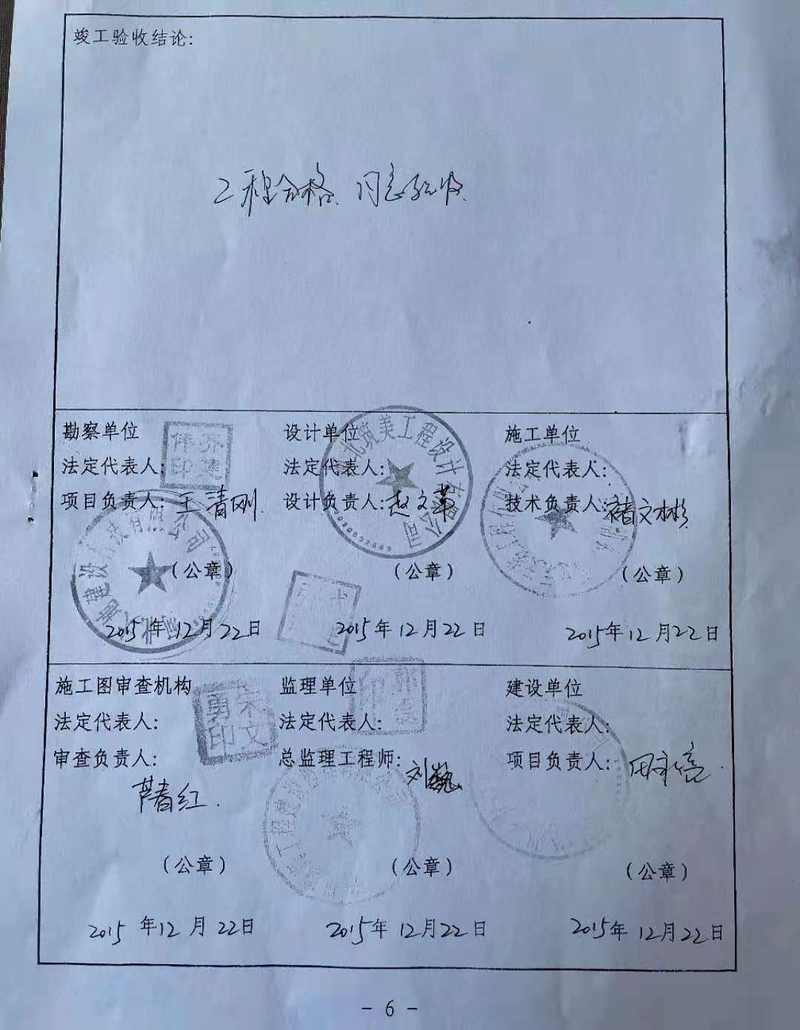 竣工验收结论:
工程合格、同意验收
勘察单位
法定代表人:
项目负责人: 王清刚
(公章)
2015年12月22日
设计单位
法定代表人:
设计负责人: 赵文革
(公章)
2015年12月22日
筑美工程设计有限公司
施工单位
法定代表人:
技术负责人: 褚文彬
(公章)
2015年12月22日
施工图审查机构
法定代表人:
审查负责人:
(公章)
2015年12月22日
朱文勇印
监理单位
法定代表人:
总监理工程师: 刘巍
(公章)
2015年12月22日
建设单位
法定代表人:
项目负责人:
(公章)
2015年12月22日
- 6 -